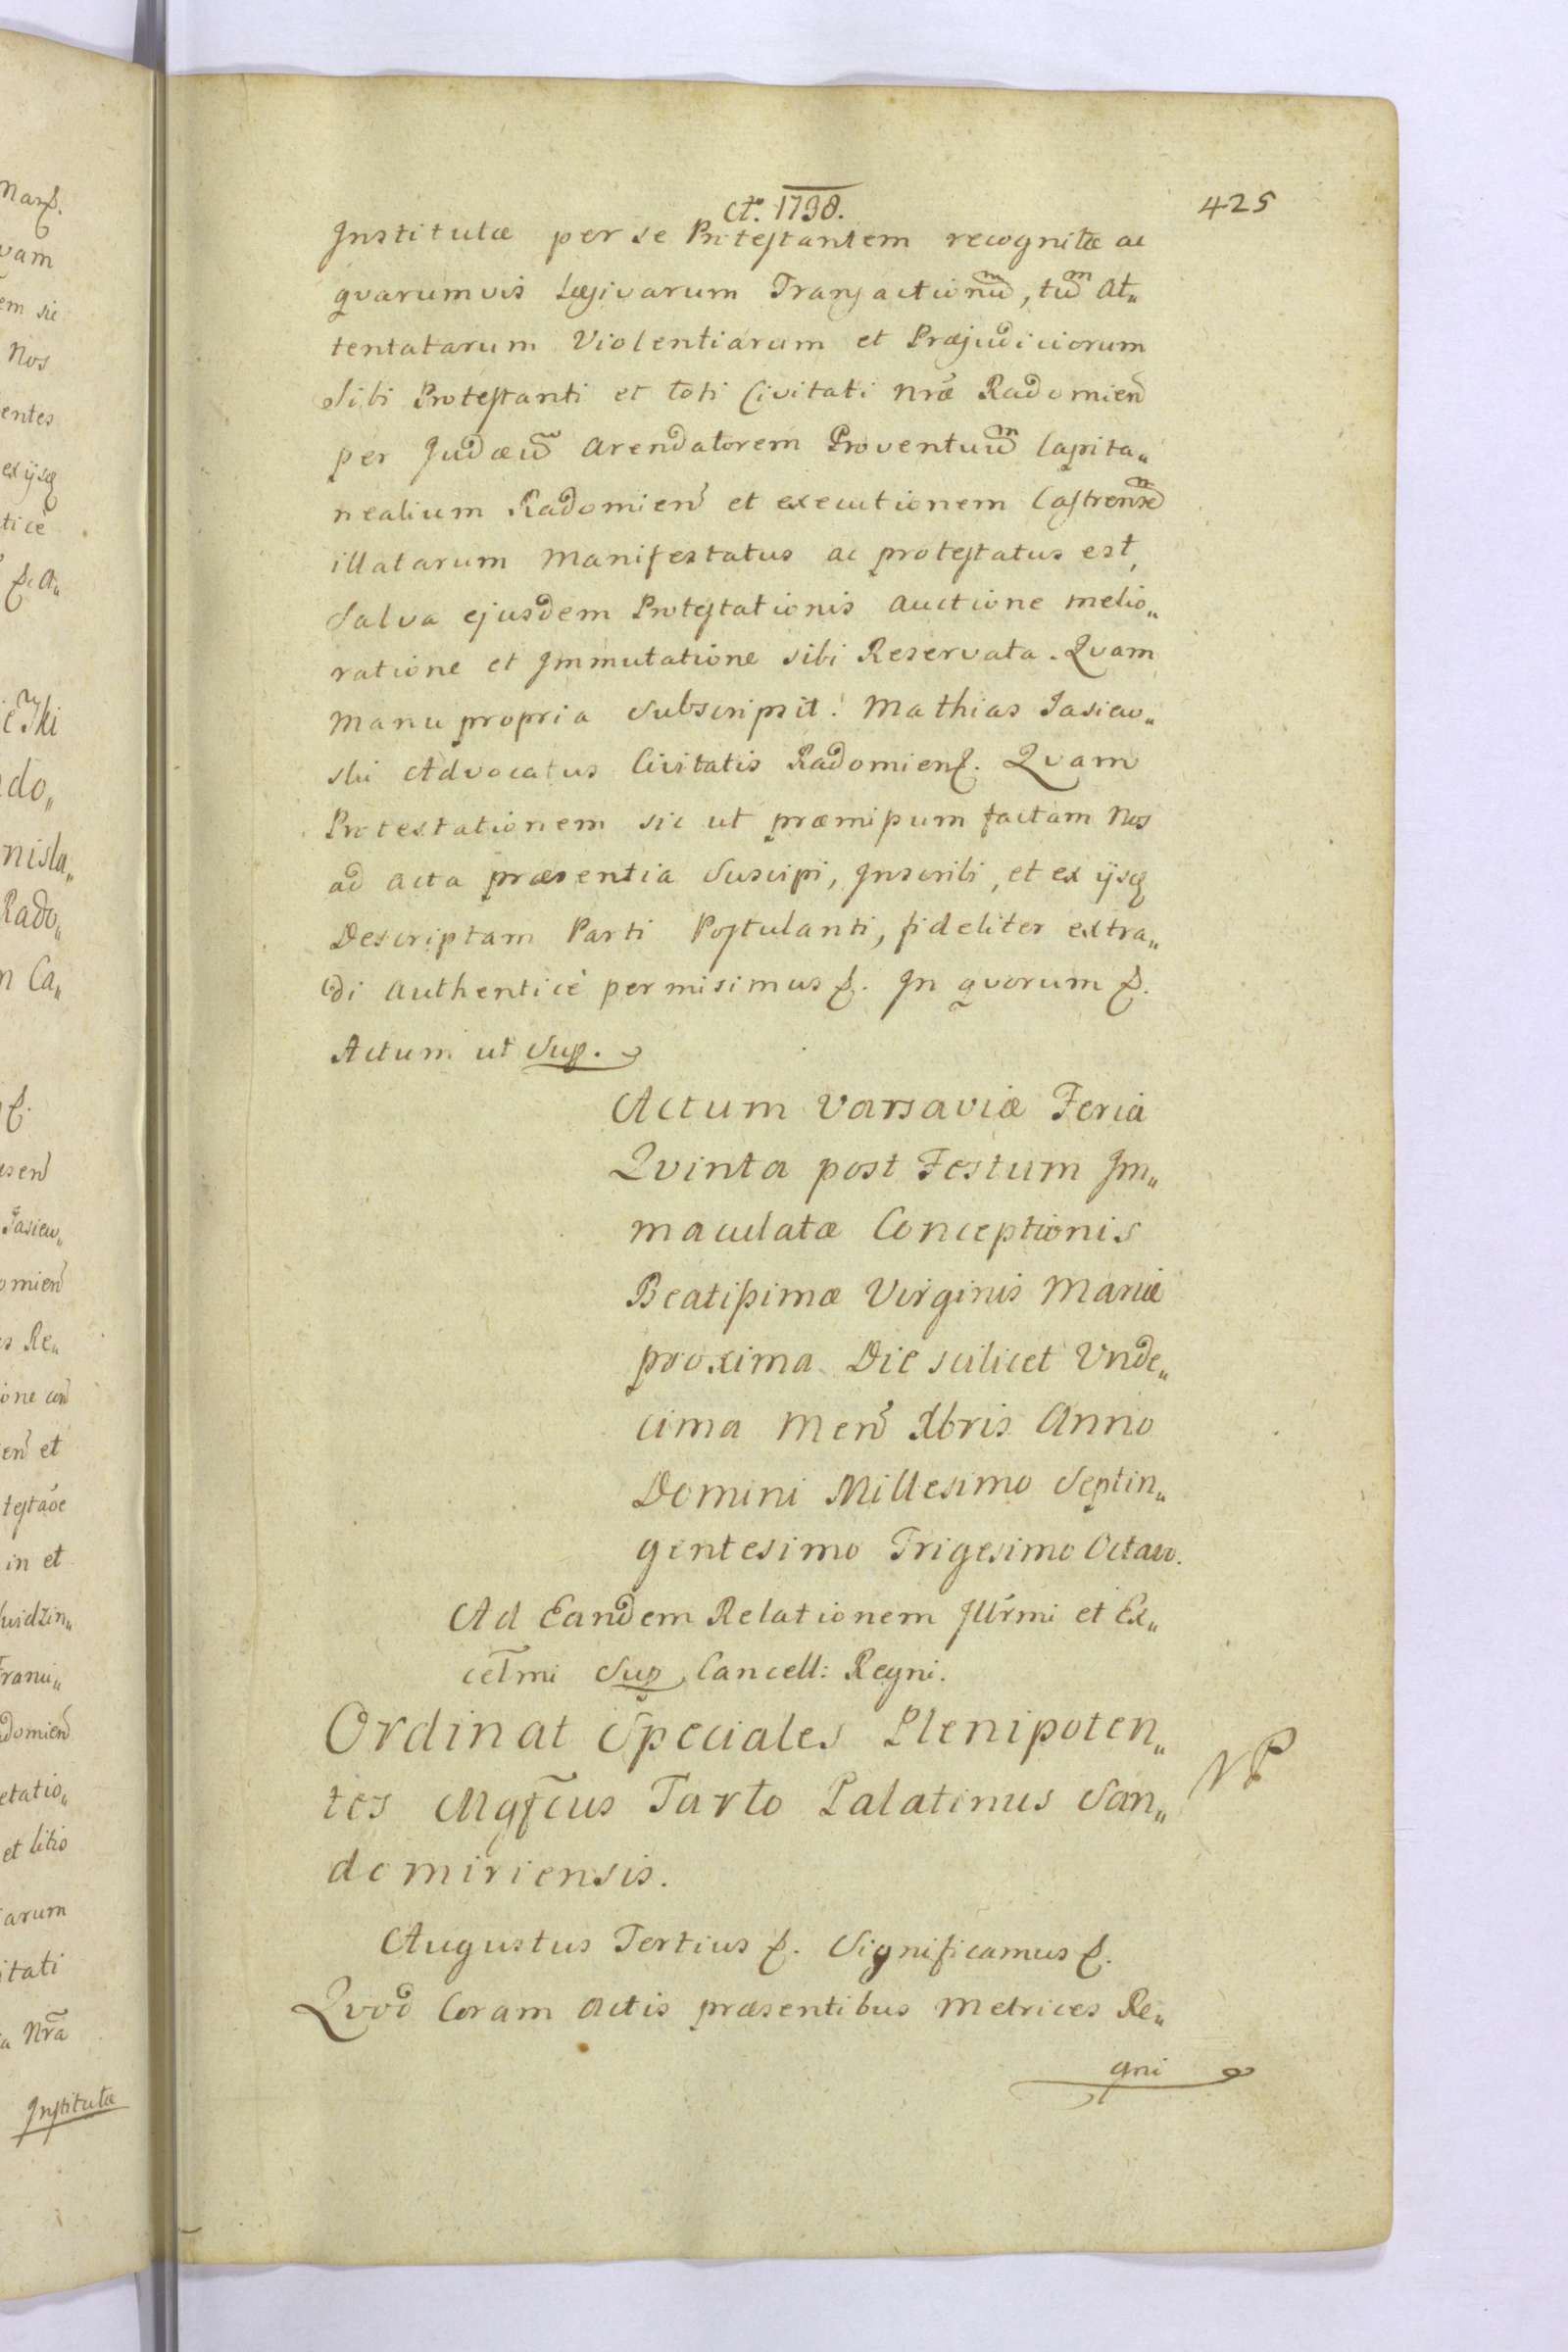 A. 1738. 425
Institutæ per se Protestantem recognitæ ac
qvarumvis Læsivarum Transactionu͠m, tu͠m At„
tentatarum Violentiarum et Præjudiciorum
Sibi Protestanti et toti Civitati nr̃æ Radomien̄
per Judæu͠m Arendatorem Proventuu͠m Capita„
nealium Radomien̄ et executionem Castrense͠m
illatarum Manifestatus ac protestatus est,
Salva ejusdem Protestationis auctione melio„
ratione et Immutatione sibi Reservata. Qvam
Manu propria Subscripsit. Mathias Jasiew„
ski Advocatus Civitatis Radomien. Qvam
Protestationem sic ut præmissum factam Nos
ad acta præsentia Suscipi, Inscribi, et ex ijsq
Descriptam Parti Postulanti, fideliter extra„
di Authenticè permisimus &. In qvorum &.
Actum ut Sup.
Actum Varsaviæ Feria
Qvinta post Festum Im„
maculatæ Conceptionis
Beatissimæ Virginis Mariæ
proxima Die scilicet Unde„
cima Men̄ Xbris Anno
Domini Millesimo Septin„
gentesimo Trigesimo Octavo.
Ad Eandem Relationem Illr̃mi et Ex„
cell̃mi Sup Cancell: Regni.
Ordinat Speciales Plenipoten„
tes Mgfc̃us Tarło Palatinus San„
domiriensis.
NP
Augustus Tertius &. Significamus &.
Qvod Coram Actis præsentibus Metrices Re„
gni
vam
Nos
entes
ex ijsq
ticè
do„
nisla„
Rado„
n Ca„
Jasiew„
omien̄
s Re„
en̄ et
in et
domien̄
etatio„
et litio
arum
itati
a Nr̃a
Instituta